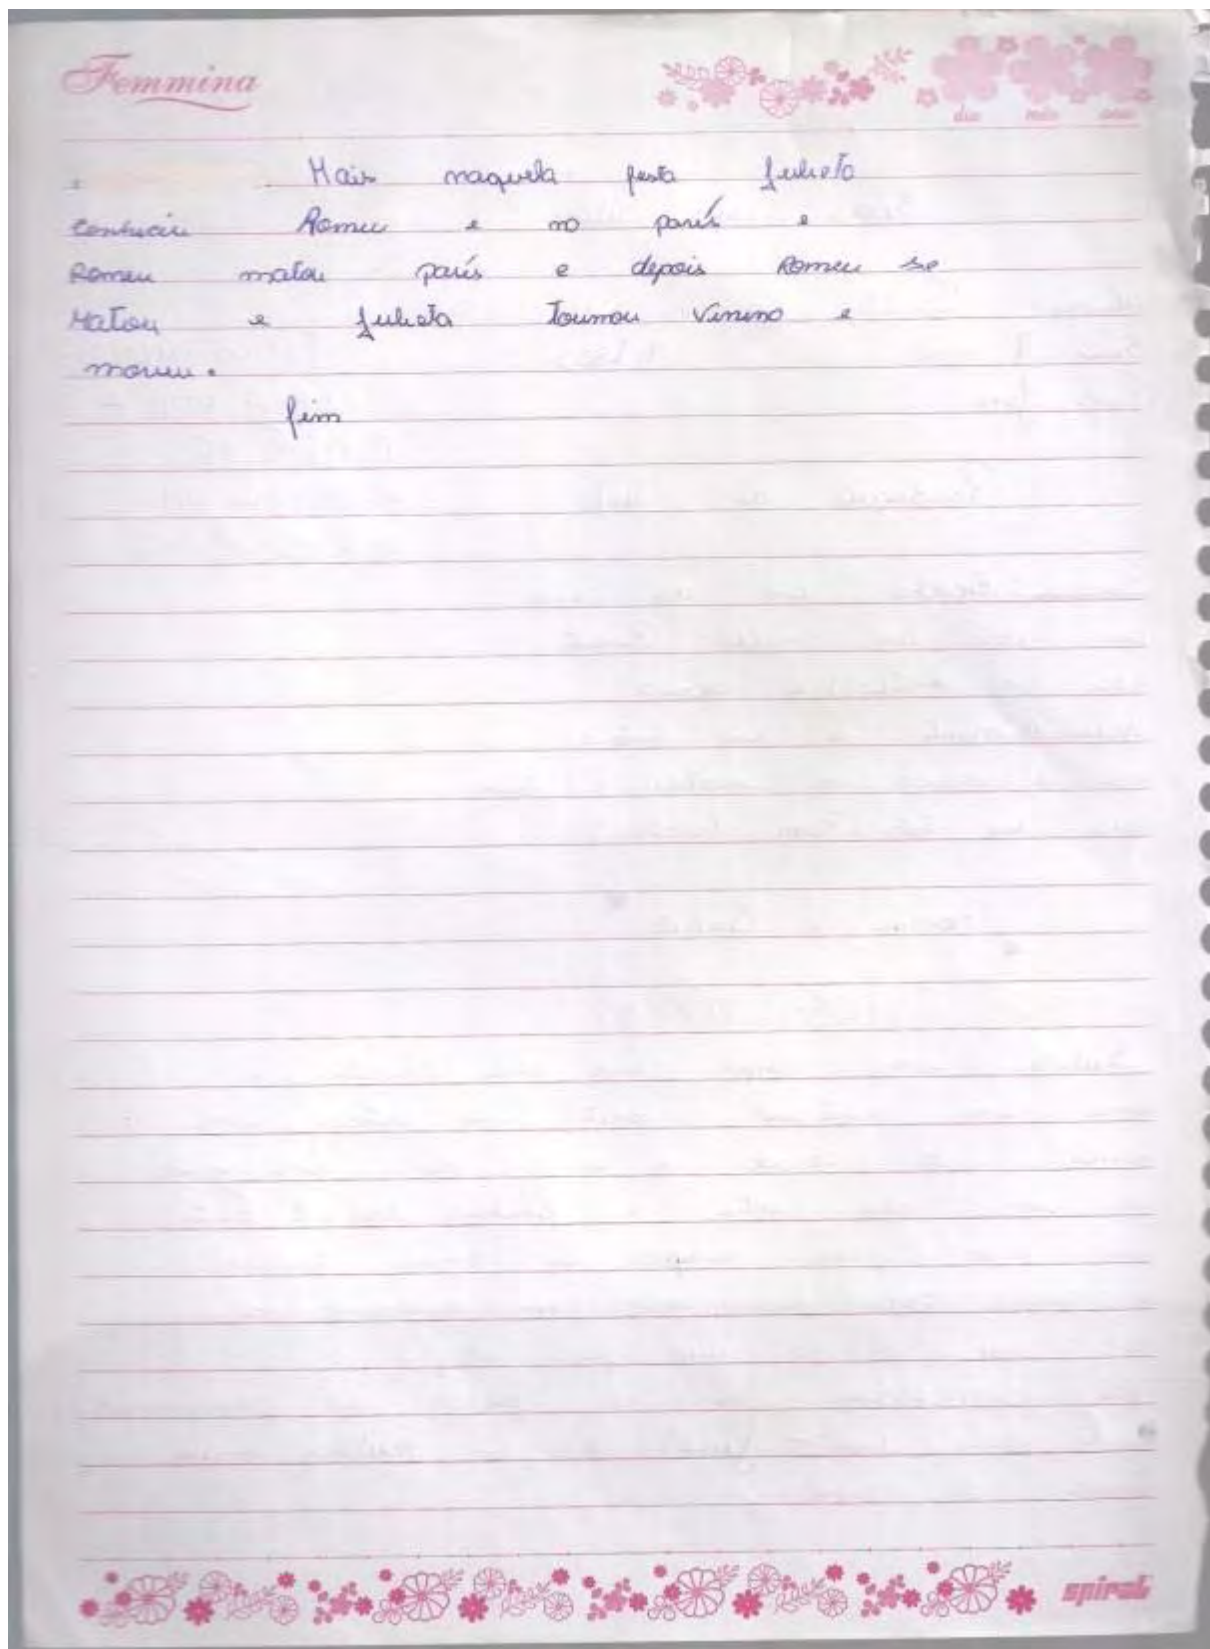 Femmina
dia mês ano
Mais naquela festa Julieta
conhuceu Romeu e no parís e
Romeu matou parís e depois Romeu se
Matou e Julieta toumou Vinino e
moreu.
fim
spiral